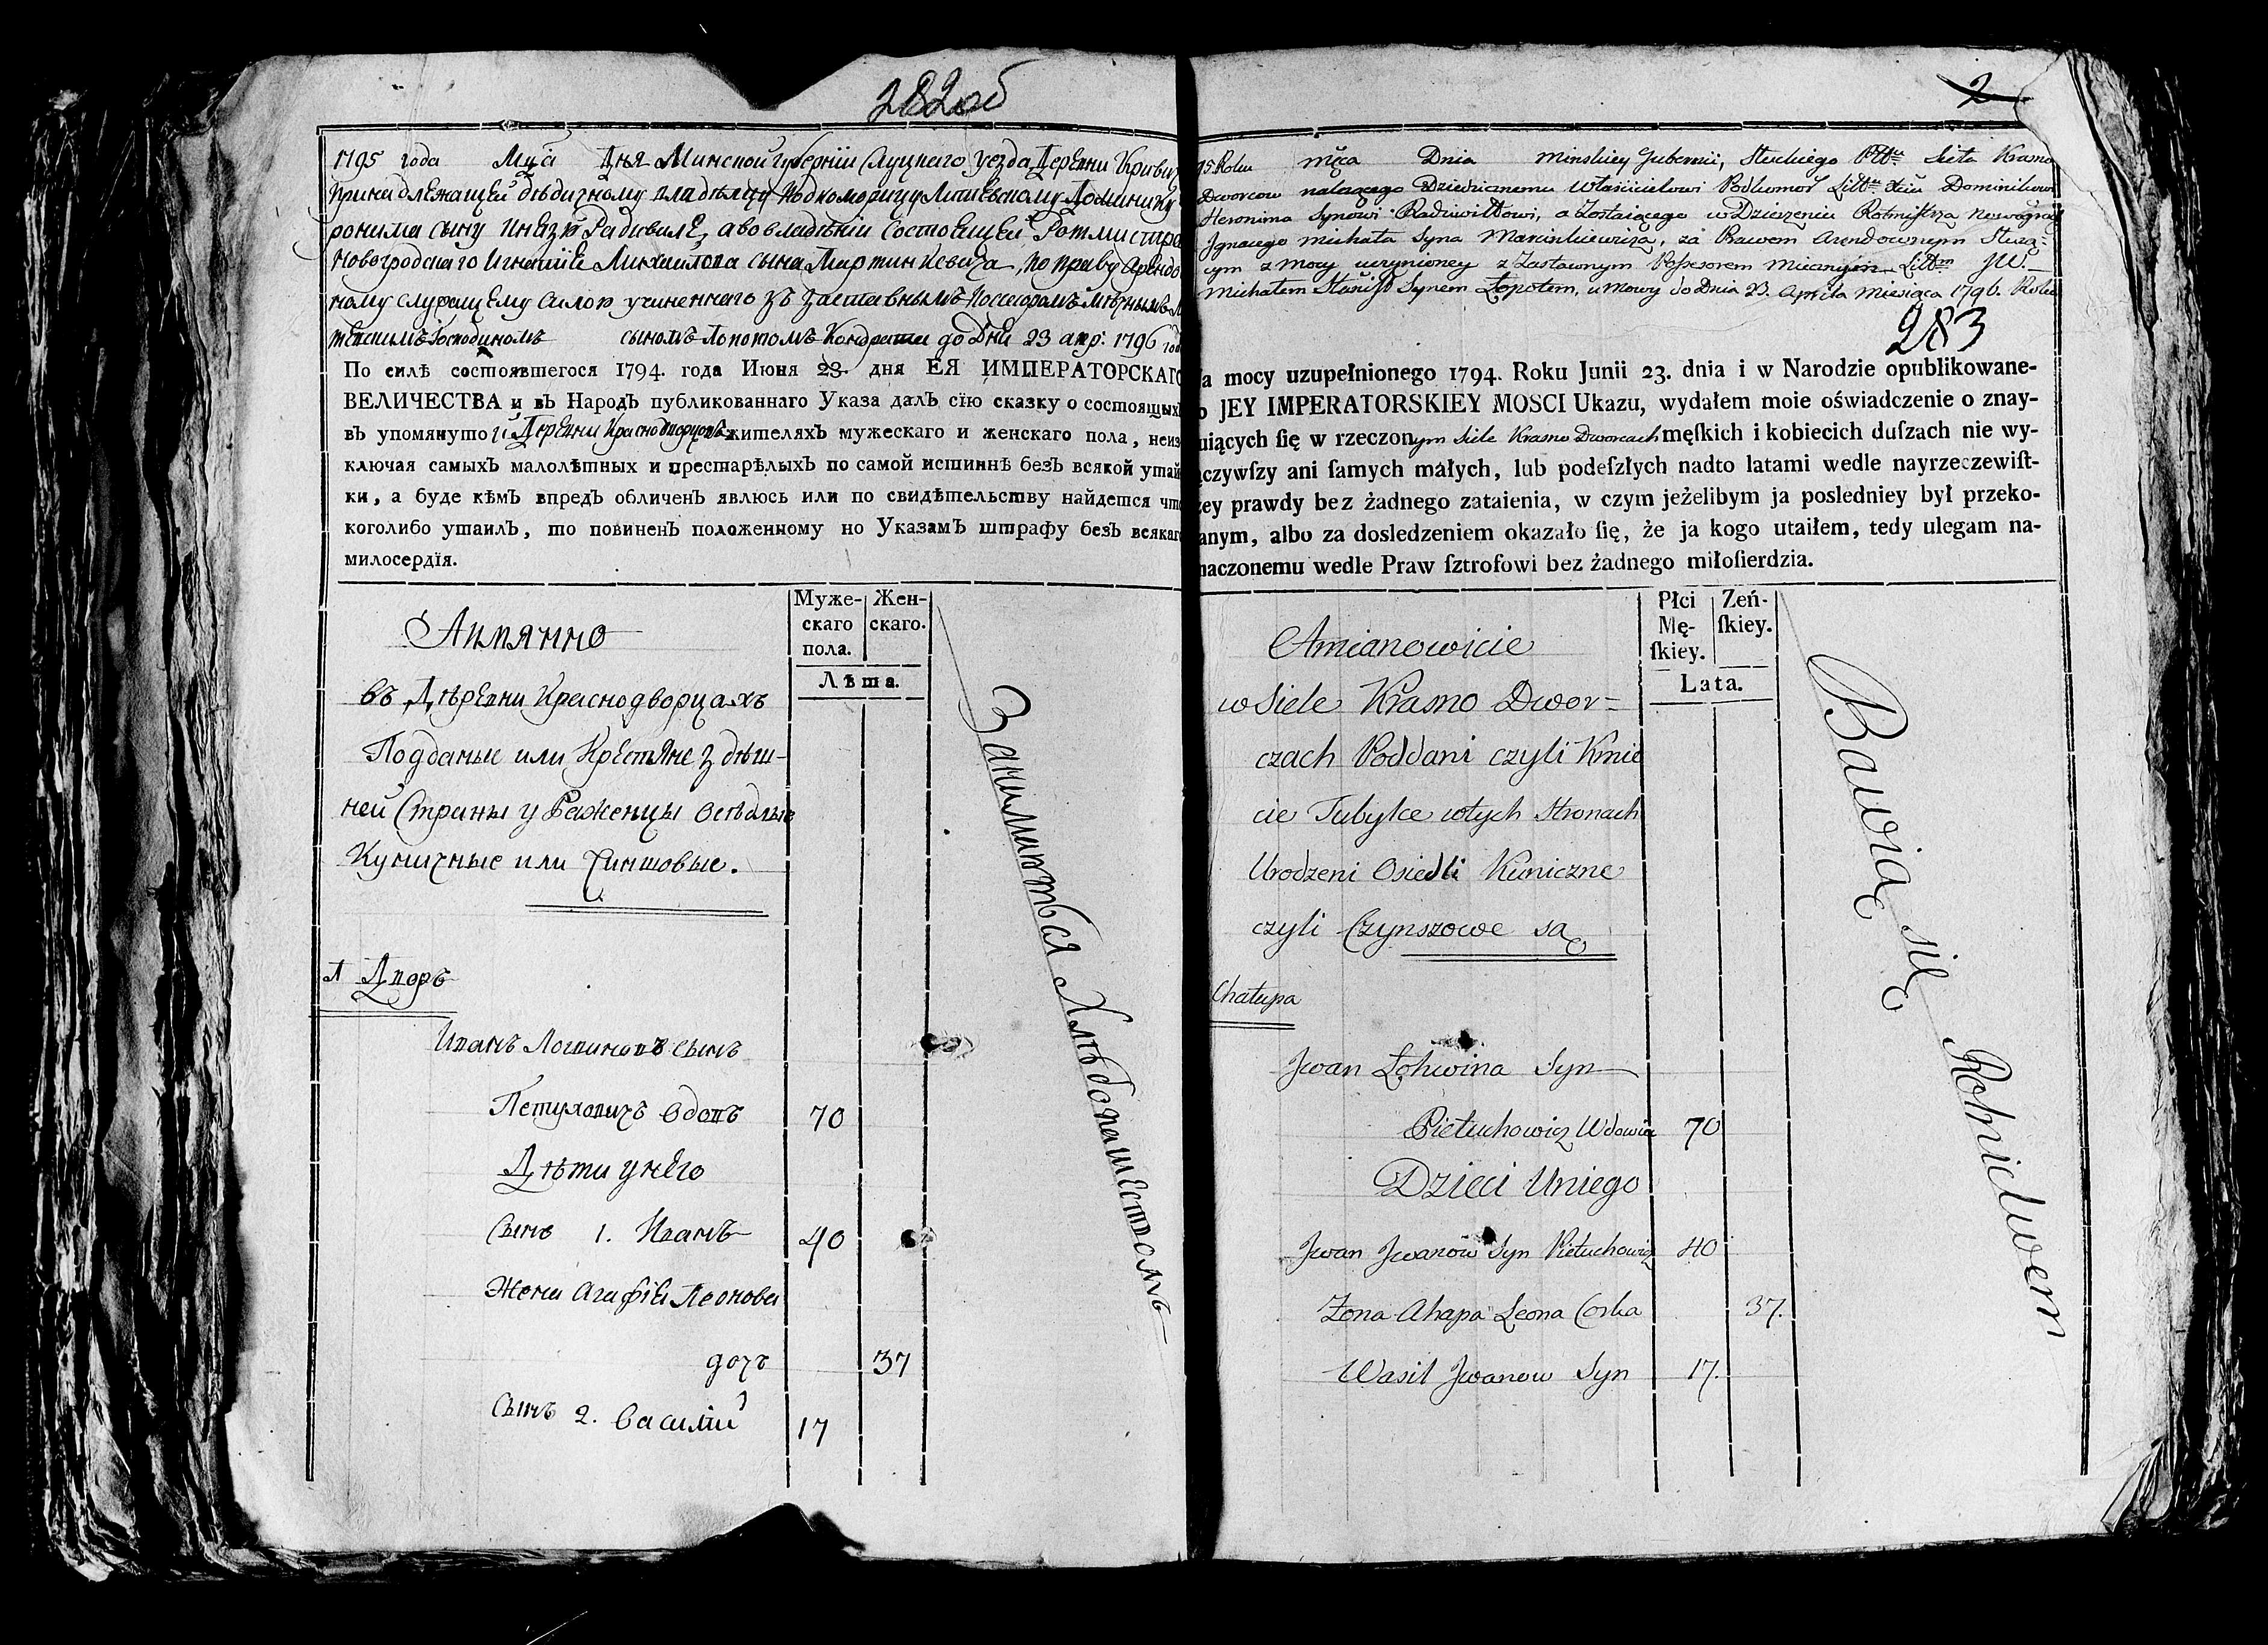 282об
1795 года Мца Дня Минской губернии Слуцкаго уезда Деревни
принадлежащей дѣдичному владѣлцу Подкоморицу Литевскому Доминику
ронима сыну Князю Радивилѣ, а во владѣнии состоящей Ротмистра
Новогродскаго Игнация Михаилова сына Мартинкевича, по праву Арендо
ному служащему силою учиненнаго зъ заставнымъ Поссесоромъ
Господиномъ сыномъ Лопотомъ до Дня 23 апр: 1796 год
По силѣ состоявшегося 1794. года Июня 23. дня ЕЯ ИМПЕРАТОРСКАГО
ВЕЛИЧЕСТВА и въ Народъ публикованнаго Указа далъ сїю сказку о состоящихъ
въ упомянутой Деревни Краснодворцахъ жителяхъ мужескаго и женскаго пола, неиз
ключая самыхъ малолѣтных и престарѣлыхъ по самой истиннѣ безъ всякой утай
ки, а буде кѣмъ впредъ обличенъ явлюсь или по свидѣтельству найдется что
коголибо утаилъ, то повиненъ положенному но Указамъ штрафу безъ всякаго
милосердїя.
Аимянно
Муже-скаго пола. Жен-скаго.
Лѣта.
въ Дѣревни Краснодворцахъ
Подданые или Крестяне здѣш-
ней Страны уроженцы осѣдлые
Куничные или Чиншовые.
Занимаются Хлѣбопашествомъ
1 Дворъ
Иванъ Логвиновъ сынъ
Петуховичъ вдовъ 70
Дѣти у него
Сынъ 1. Иванъ 40
Жена Агафия Леонова
дочъ 37
Сынъ 2. Василий 17
2
95 Roku mca Dnia Minskiey Gubernii, Słuckiego Pttu Sieła Krasno
Dworcow należącego Dziedzicznemu Właścicielowi Podkomor Litt Xciu Dominikowi
Heronima Synowi Radziwiłłowi, a Zostaiącego w Dzierżeniu Rotmistrza Nowogrodz
Jgnacego Michała Syna Marcinkiewicza, za Prawem Arendownym Służą-
cym z Mocy uczynioney z Zastawnym Possesorem Miecznym Litt JW.
Michałem Stanisł Synem Łopotem, umowy do Dnia 23. Aprila Miesiąca 1796. Roku
283
a mocy uzupełnionego 1794. Roku Junii 23. dnia i w Narodzie opublikowane-
o JEY IMPERATORSKIEY MOSCI Ukazu, wydałem moie oświadczenie o znay-
uiących ſię w rzeczonym Siele Krasno Dworcach męſkich i kobiecich duſzach nie wy-
ączywſzy ani ſamych małych, lub podeſzłych nadto latami wedle nayrzeczewiſt-
zey prawdy bez żadnego zataienia, w czym jeżelibym ja posledniey był przeko-
anym, albo za dosledzeniem okazało ſię, że ja kogo utaiłem, tedy ulegam na-
naczonemu wedle Praw ſztrofowi bez żadnego miłoſierdzia.
Amianowicie
Płci Mę-ſkiey. Zeń-ſkiey.
Lata.
w Siele Krasno Dwor-
czach Poddani czyli Kmie
cie Tubylce w tych Stronach
Urodzeni Osiedli Kuniczne
czyli Czynszowe są
Bawią się Rolnictwem
Chałupa
Jwan Łohwina Syn
Pietuchowicz Wdowiec 70
Dzieci Uniego
Jwan Jwanow Syn Pietuchowicz 40
Żona Ahapa Leona Corka 37.
Wasil Jwanow Syn 17.